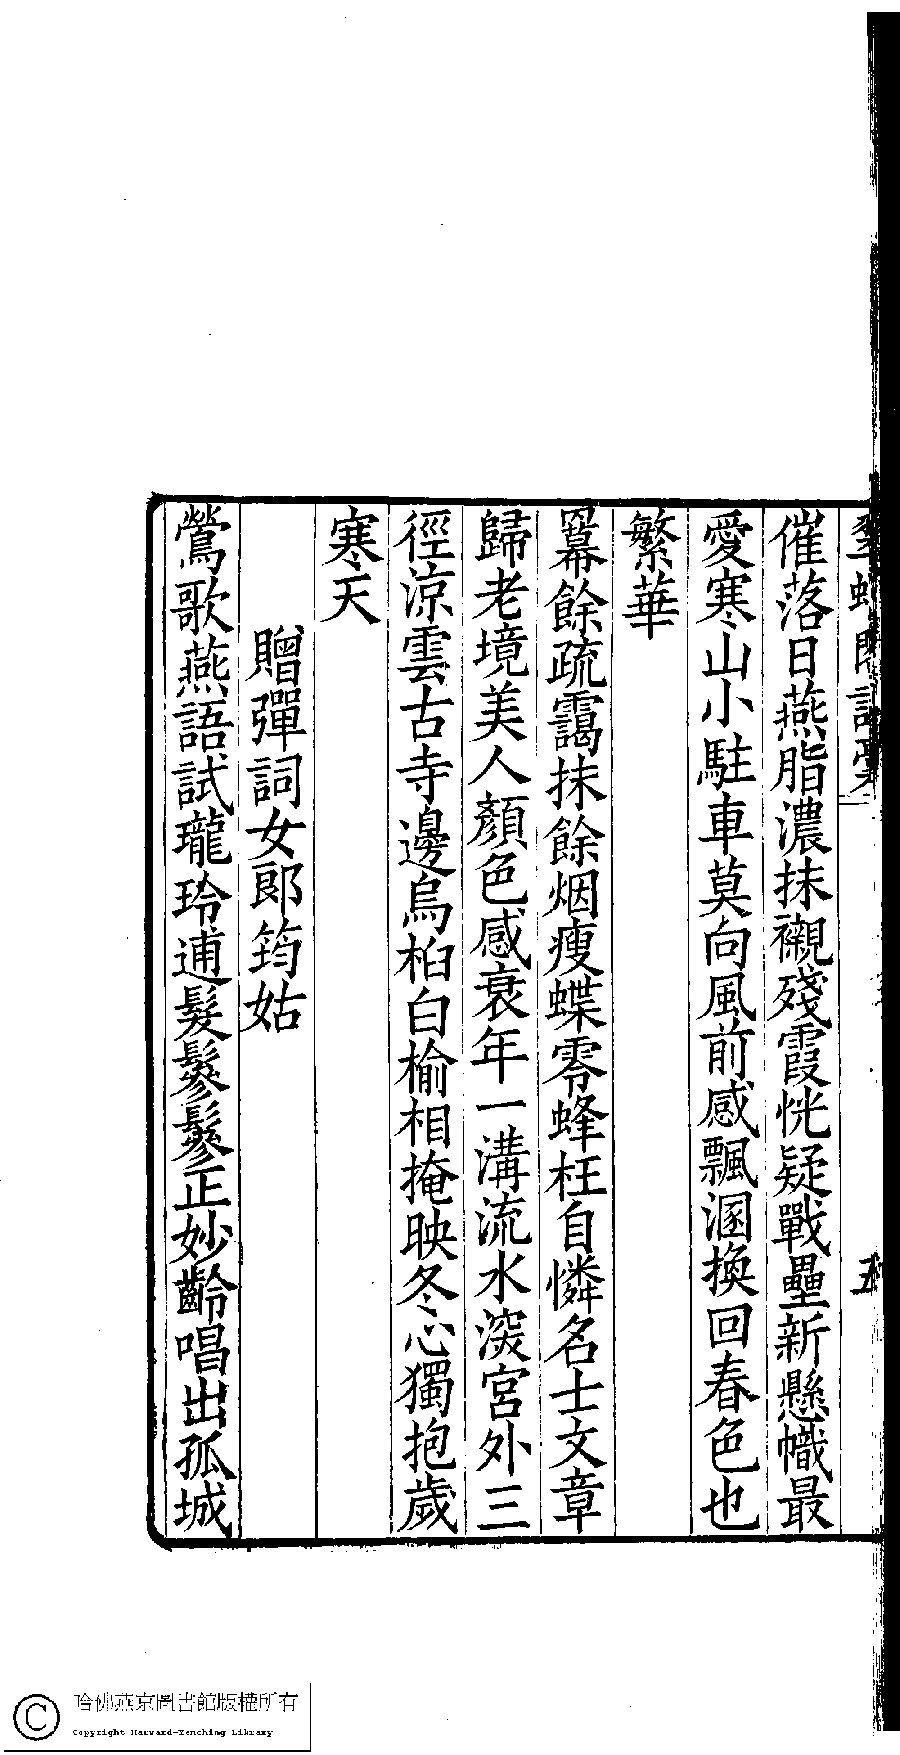 催落日燕脂濃抹襯殘霞恍疑戰壘新懸幟最
愛寒山小駐車莫向風前感飄溷換回春色也
繁華
羃餘疏靄抹餘烟瘦蝶零蜂枉自憐名士文章
歸老境美人顏色感衰年一溝流水深宮外三
徑涼雲古寺邊烏桕白榆相掩映冬心獨抱歲
寒天
贈彈詞女郎筠姑
鶯歌燕語試瓏玲逋髮鬖鬖正妙齡唱出孤城
五
哈佛燕京圖書館版權所有
Copyright Harvard-Yenching Library